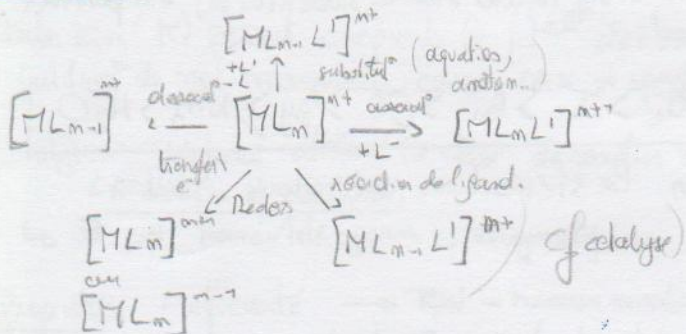 [ML_{n-1} L']^{n+}
+L' -L substitut° (aquation, anation..)
[ML_{n-1}]^{n+} dissociat° [ML_n]^{n+} associat° +L^- [ML_n L']^{n+-1}
transfert e^- Redox réaction de ligand.
[ML_n]^{n+1} [ML_{n-1} L']^{n+} cf catalyse)
ou
[ML_n]^{n-1}